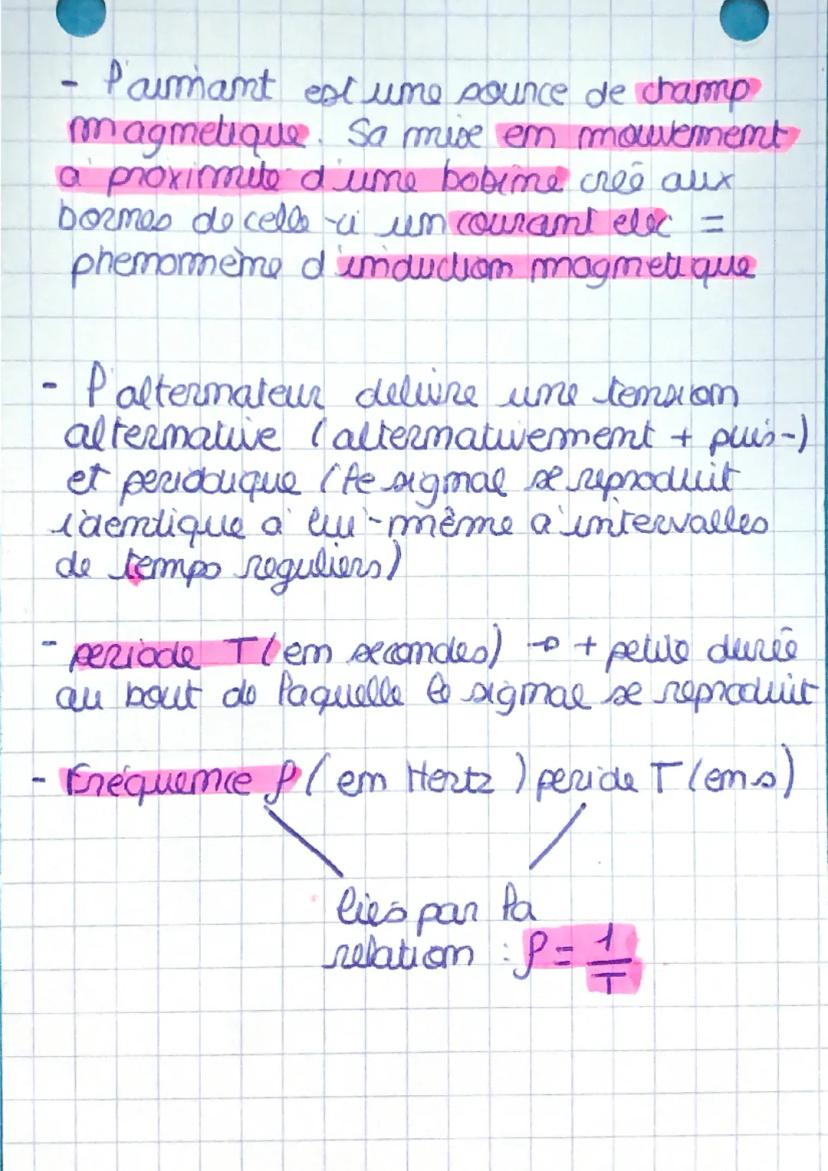 - l'aimant est une source de champ
magnetique. Sa mise en mouvement
a proximite d'une bobine creé aux
bornes de celle-ci un courant elec =
phenomème d'induction magnetique
- l'alternateur delivre une tension
alternative (alternativement + puis -)
et periodique (le signal se reproduit
identique a lui-même a intervalles
de temps reguliers)
- periode T (em secondes) → + petite durée
au bout de laquelle le signal se reproduit
- Fréquence f (em Hertz) periode T (em s)
liés par la
relation : f = 1/T